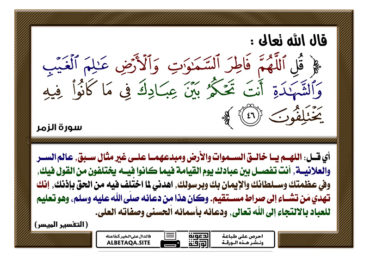 قال الله تعالى :
﴿ قُلِ اللَّهُمَّ فَاطِرَ السَّمَٰوَٰتِ وَالْأَرْضِ عَٰلِمَ الْغَيْبِ
وَالشَّهَٰدَةِ أَنتَ تَحْكُمُ بَيْنَ عِبَادِكَ فِي مَا كَانُوا۟ فِيهِ
يَخْتَلِفُونَ ٤٦ ﴾
سورة الزمر
أي قل: اللهم يا خالق السموات والأرض ومبدعهما على غير مثال سبق، عالم السر
والعلانية، أنت تفصل بين عبادك يوم القيامة فيما كانوا فيه يختلفون من القول فيك،
وفي عظمتك وسلطانك والإيمان بك وبرسولك، اهدني لما اختلف فيه من الحق بإذنك، إنك
تهدي من تشاء إلى صراط مستقيم. وكان هذا من دعائه صلى الله عليه وسلم، وهو تعليم
للعباد بالالتجاء إلى الله تعالى، ودعائه بأسمائه الحسنى وصفاته العلى.
(التفسير الميسر)
احرص على طباعة
ونشر هذه الورقة
الدال على الخير كفاعله
ALBETAQA.SITE